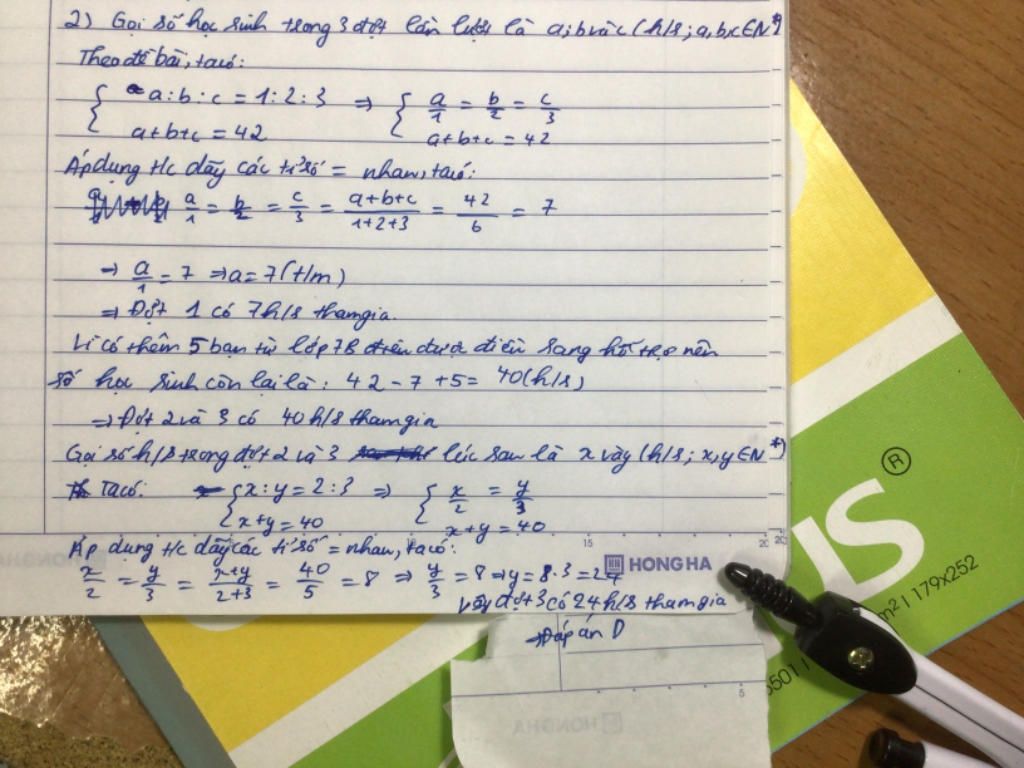 2) Gọi số học sinh trong 3 đợt lần lượt là a; b và c (h/s; a, b, c ∈ N*)
Theo đề bài, ta có:
{ a : b : c = 1 : 2 : 3 ⇒ { a/1 = b/2 = c/3
a + b + c = 42 a + b + c = 42
Áp dụng t/c dãy các tỉ số = nhau, ta có:
a/1 = b/2 = c/3 = a+b+c/1+2+3 = 42/6 = 7
→ a/1 = 7 ⇒ a = 7 (t/m)
⇒ Đợt 1 có 7 h/s tham gia.
Vì có thêm 5 bạn từ lớp 7B được điều sang hỗ trợ nên
số học sinh còn lại là: 42 - 7 + 5 = 40 (h/s)
⇒ Đợt 2 và 3 có 40 h/s tham gia
Gọi số h/s trong đợt 2 và 3 lúc sau là x và y (h/s; x, y ∈ N*)
Ta có: { x : y = 2 : 3 ⇒ { x/2 = y/3
x + y = 40 x + y = 40
Áp dụng t/c dãy các tỉ số = nhau, ta có:
x/2 = y/3 = x+y/2+3 = 40/5 = 8 ⇒ y/3 = 8 ⇒ y = 8.3 = 24
Vậy đợt 3 có 24 h/s tham gia
⇒ Đáp án D
15
20
HH HONG HA
5
HONG HA
®
US
m² | 179x252